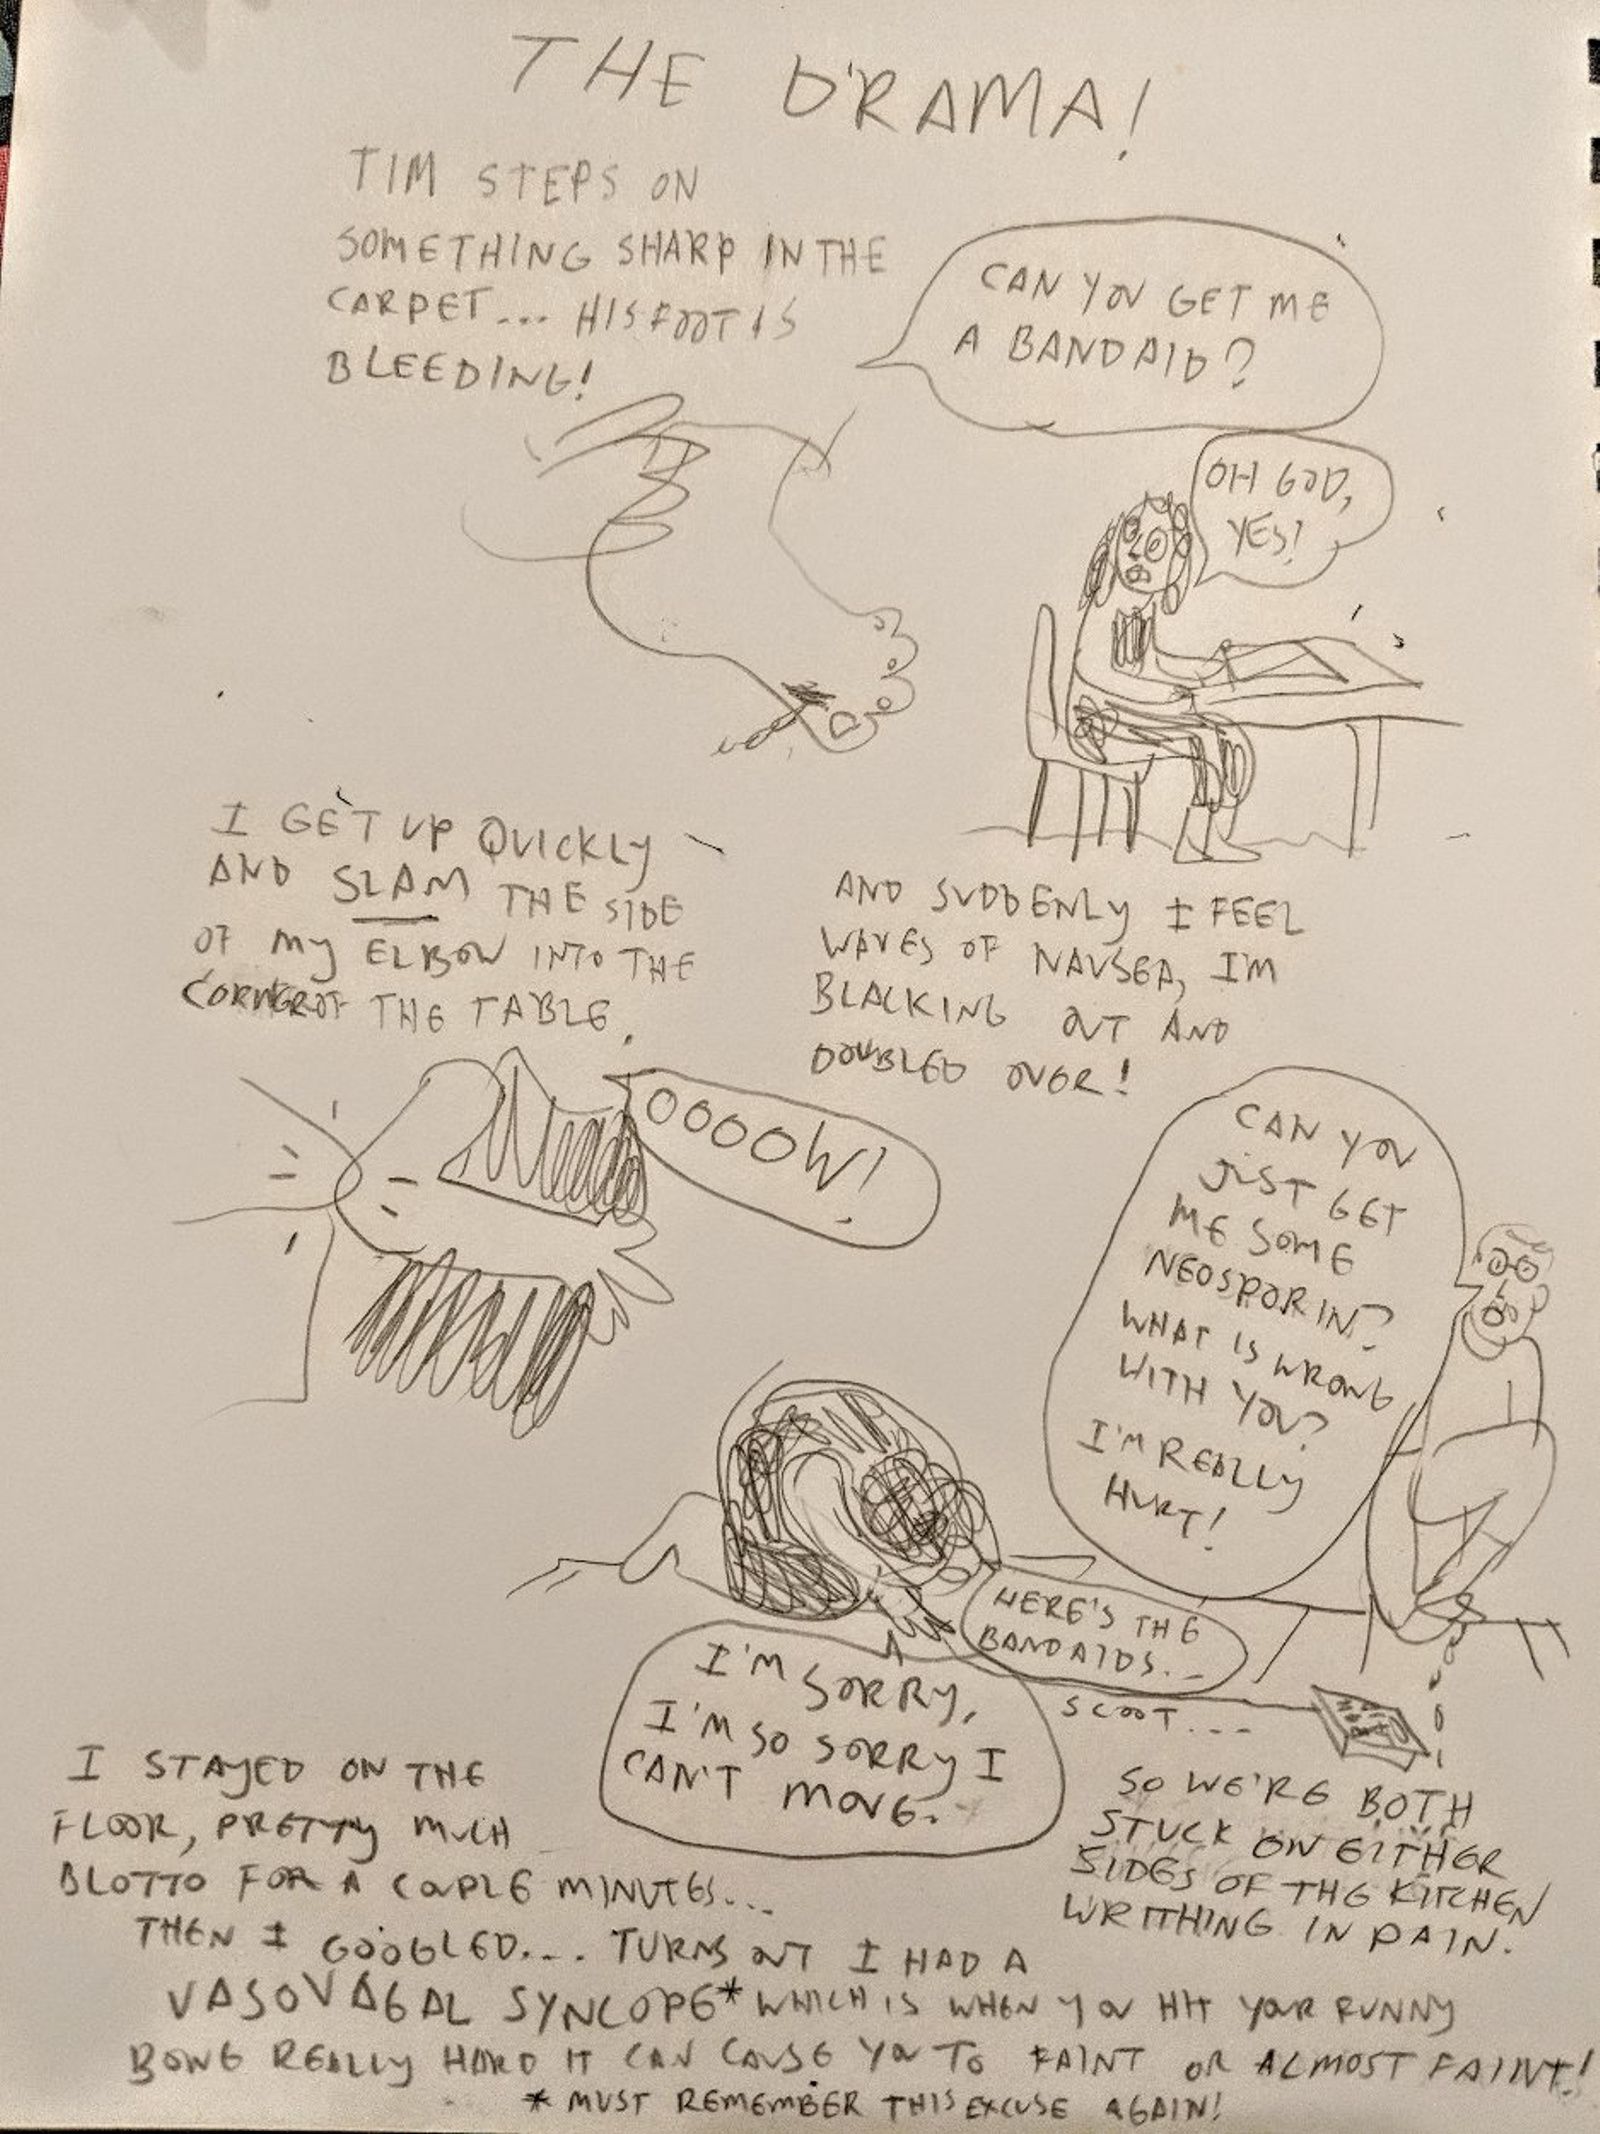 THE DRAMA!
TIM STEPS ON
SOMETHING SHARP IN THE
CARPET... HIS FOOT IS
BLEEDING!
CAN YOU GET ME
A BANDAID?
OH GOD,
YES!
I GET UP QUICKLY
AND SLAM THE SIDE
OF MY ELBOW INTO THE
CORNER OF THE TABLE.
OOOOW!
AND SUDDENLY I FEEL
WAVES OF NAUSEA, I'M
BLACKING OUT AND
DOUBLED OVER!
CAN YOU
JUST GET
ME SOME
NEOSPORIN?
WHAT IS WRONG
WITH YOU?
I'M REALLY
HURT!
HERE'S THE
BANDAIDS...
SCOOT...
I'M SORRY,
I'M SO SORRY I
CAN'T MOVE.
SO WE'RE BOTH
STUCK ON EITHER
SIDES OF THE KITCHEN
WRITHING IN PAIN.
I STAYED ON THE
FLOOR, PRETTY MUCH
BLOTTO FOR A COUPLE MINUTES...
THEN I GOOGLED... TURNS OUT I HAD A
VASOVAGAL SYNCOPE* WHICH IS WHEN YOU HIT YOUR FUNNY
BONE REALLY HARD IT CAN CAUSE YOU TO FAINT OR ALMOST FAINT!
* MUST REMEMBER THIS EXCUSE AGAIN!